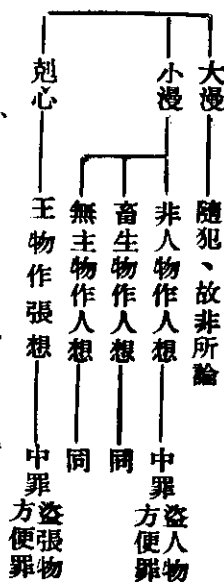 大漫 隨犯、故非所論
小漫 非人物作人想 中罪 盜人物
方便罪
畜生物作人想 同
無主物作人想 同
尅心 王物作張想 中罪 盜張物
方便罪